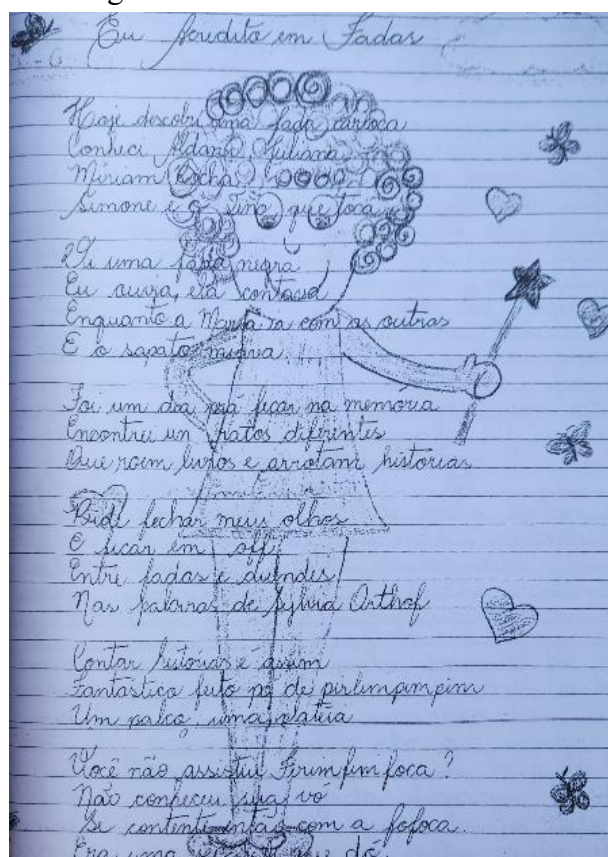 Eu Acredito em Fadas
Hoje descobri uma fada carioca
Conheci Aldanei, Juliana
Miriam Rocha
Simone e o que toca
Vi uma fada negra
Eu ouvia, ela contava
Enquanto a Maria ia com as outras
E o sapato miava
Foi um dia prá ficar na memória
Encontrei un ratos diferentes
Que roem livros e arrotam histórias
Pude fechar meus olhos
E ficar em off
Entre fadas e duendes
Nas palavras de Sylvia Orthof
Contar histórias é assim
Fantástico feito pó de pirlimpimpim
Um palco, uma platéia
Você não assistiu Firimfimfoca?
Não conheceu sua vó
Se contente então com a fofoca
Era uma que dó